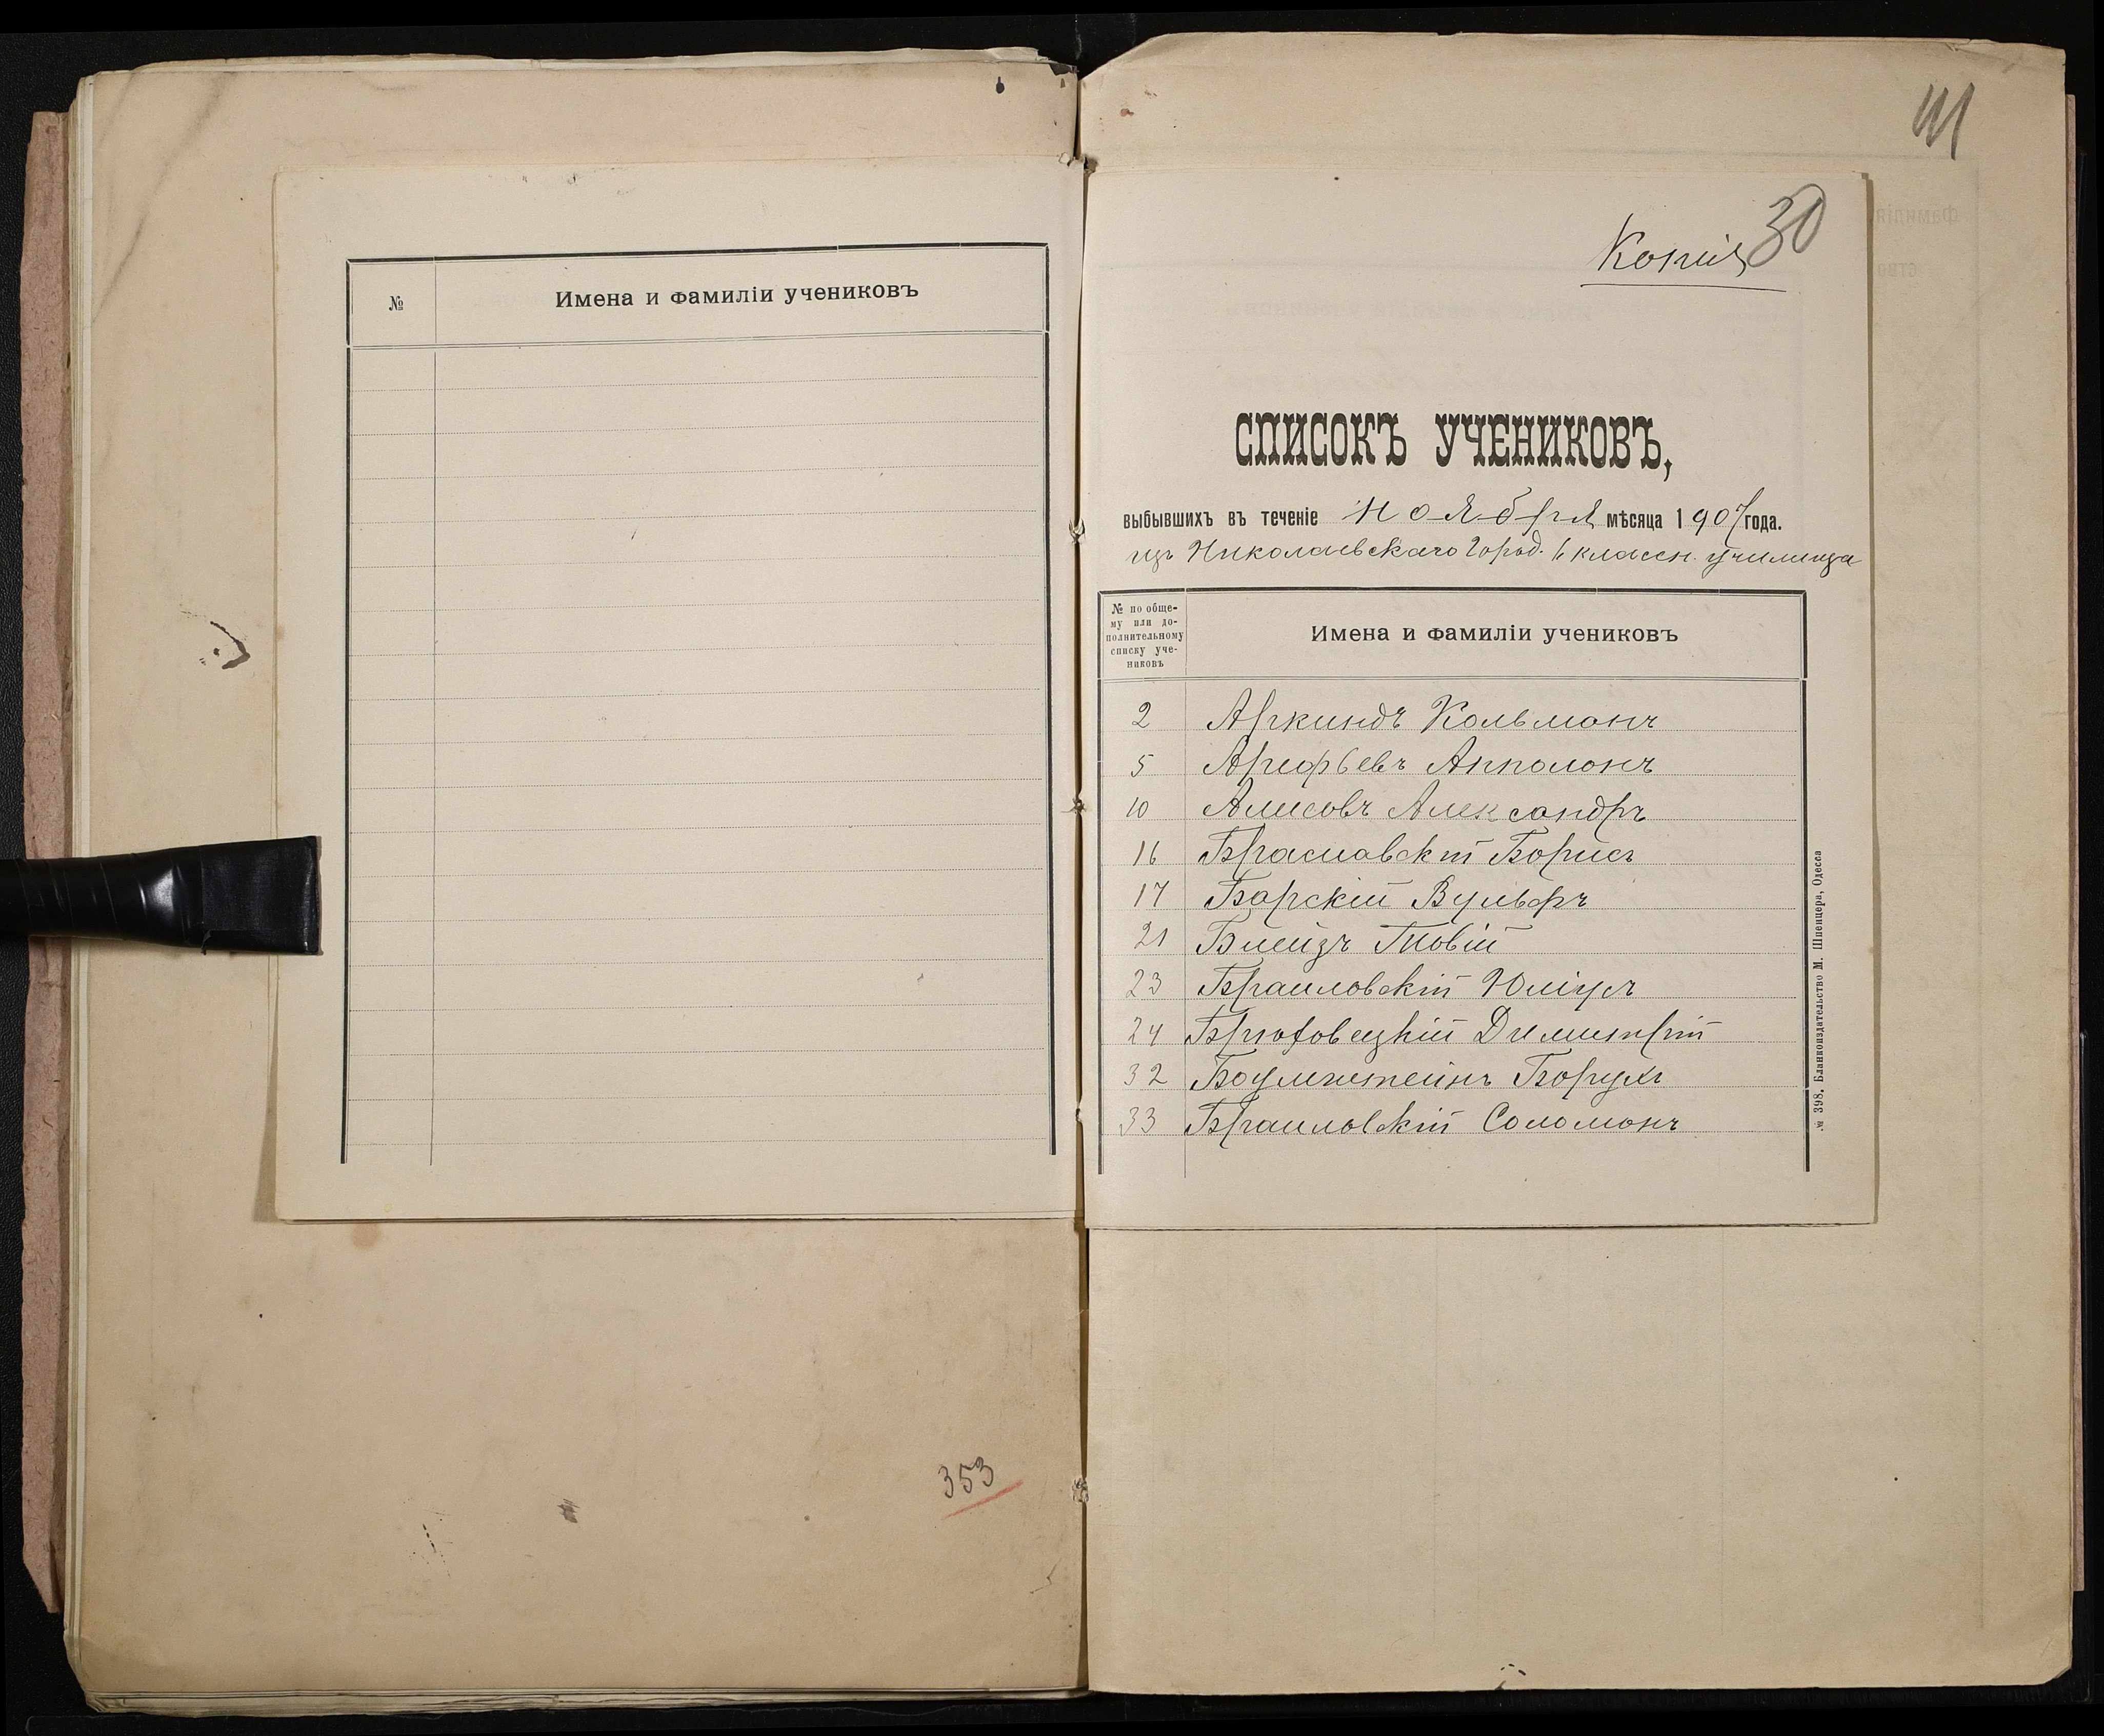 №
Имена и фамиліи учениковъ
353
41
30
Копія
СПИСОКЪ УЧЕНИКОВЪ,
выбывшихъ въ теченіе ноября мѣсяца 1907 года.
изъ Николаевскаго Город. 6 классн. училища
№ по обще-
му или до-
полнительному
списку уче-
никовъ
Имена и фамиліи учениковъ
2 Аркиндъ Кольмонъ
5 Арефьевъ Апполонъ
10 Алисовъ Александръ
16 Браславскій Борисъ
17 Барскій Вульфъ
21 Блейзъ Товій
23 Браиловскій Юліусъ
24 Брюховецкій Димитрій
32 Боумштейнъ Борухъ
33 Браиловскій Соломонъ
№ 398. Бланкоиздательство М. Шпенцера, Одесса